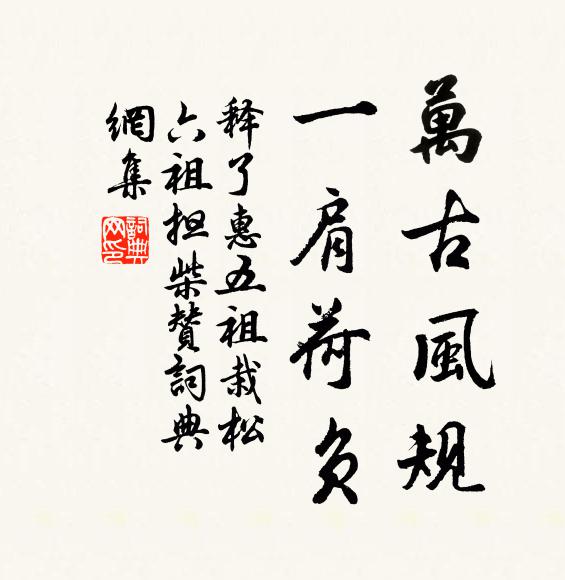 萬古風規
一肩荷負
释了惠五祖栽松
六祖担柴赞詞典
網集
詞典網印